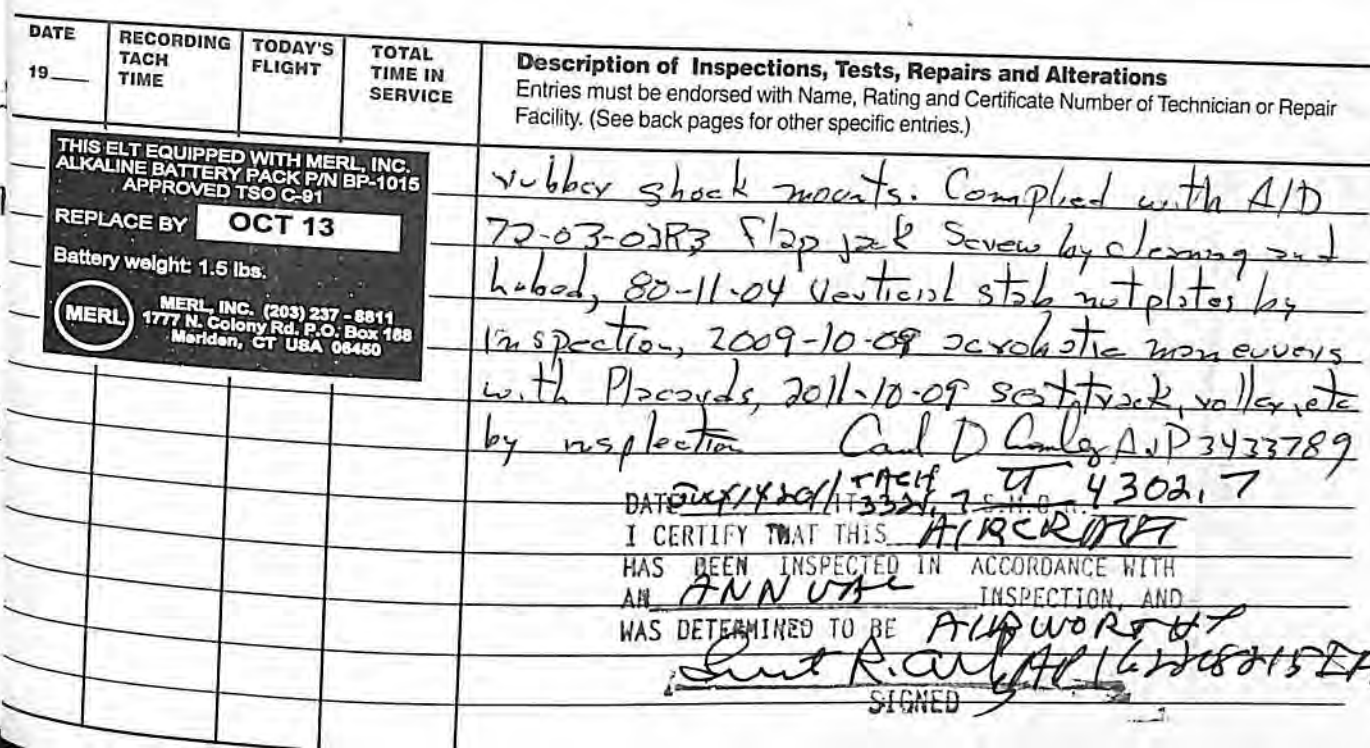 DATE
19
RECORDING
TACH
TIME
TODAY'S
FLIGHT
TOTAL
TIME IN
SERVICE
Description of Inspections, Tests, Repairs and Alterations
Entries must be endorsed with Name, Rating and Certificate Number of Technician or Repair
Facility. (See back pages for other specific entries.)
THIS ELT EQUIPPED WITH MERL, INC.
ALKALINE BATTERY PACK P/N BP-1015
APPROVED TSO C-91
REPLACE BY OCT 13
Battery weight: 1.5 lbs.
MERL
MERL, INC. (203) 237-8811
1777 N. Colony Rd. P.O. Box 188
Meriden, CT USA 06450
rubber shock mounts. Complied with A/D
72-03-03R3 Flap jack Screw by cleaning and
lubed, 80-11-04 Vertical stab nutplates by
inspection, 2009-10-09 acrobatic maneuvers
with Placards, 2011-10-09 seat track, roller, etc
by Carl D A&P 3433789
DATE 14 2011 TACH 3321.7 S.M.O.H. TT 4302.7
I CERTIFY THAT THIS AIRCRAFT
HAS BEEN INSPECTED IN ACCORDANCE WITH
AN ANNUAL INSPECTION, AND
WAS DETERMINED TO BE AIRWORTHY
R.
SIGNED